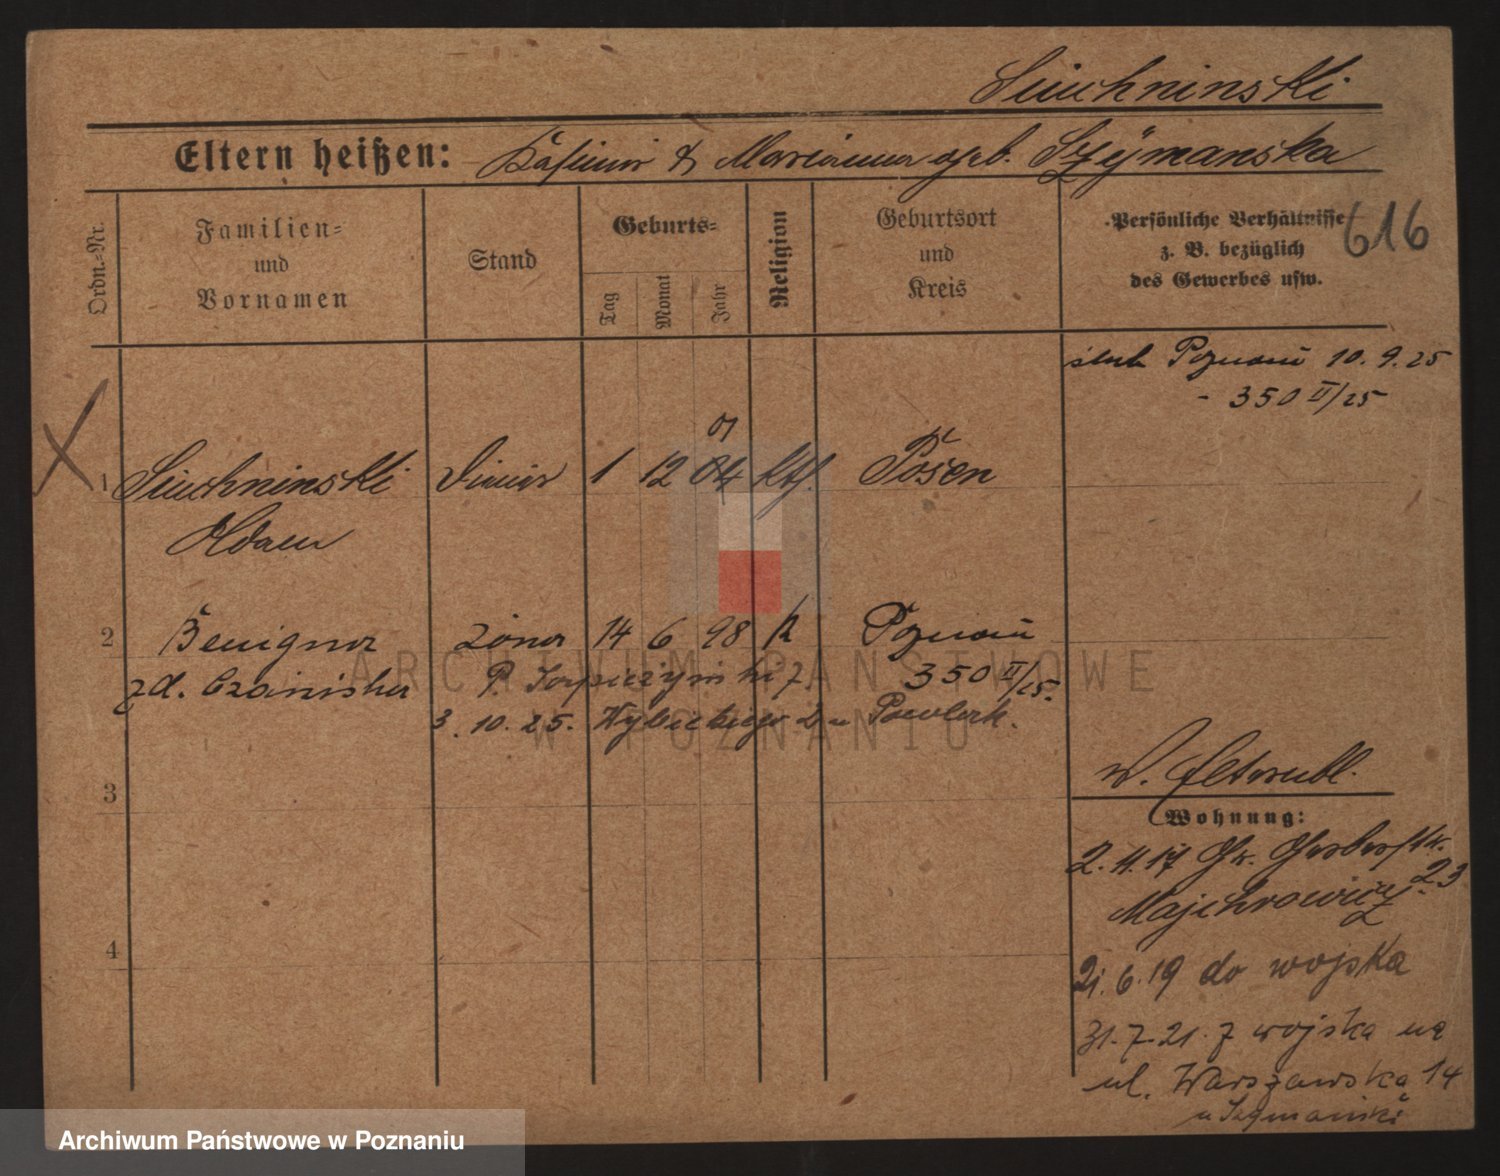 Siuchninski
Eltern heißen: Kasimir & Marianna geb. Szÿmanska
616
Ordn.-Nr.
Familien-
und
Vornamen
Stand
Geburts-
Tag
Monat
Jahr
Religion
Geburtsort
und
Kreis
Persönliche Verhältnisse
z. B. bezüglich
des Gewerbes usw.
ślub Poznań 10. 9. 25
- 350 II/25
1 Siuchninski 1 12 04 kth. Posen
01
Adam
2 Benigna żona 14 6 98 k Poznań
zd. Czainska P. 350 II/25.
3. 10. 25. Wybickiego 2 u Pawlak.
3
W.
Wohnung:
2. 11. 17 Gr. Gerberstr. 23
Majchrowicz
21. 6. 19 do wojska
4
31. 7. 21. z wojska na
ul. Warszawska 14
u Szymański
ARCHIWUM PAŃSTWOWE
W POZNANIU
Archiwum Państwowe w Poznaniu